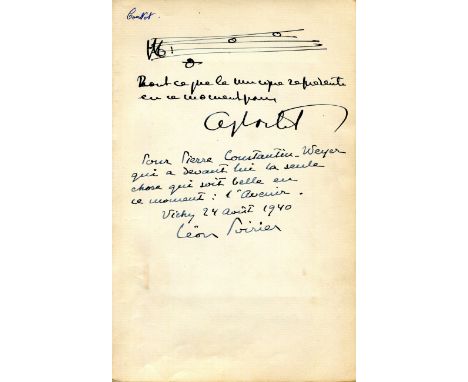 Cortot.
Tout ce que la musique représente
en ce moment pour
Pour Pierre Constantin-Weyer
qui a devant lui la seule
chose qui soit belle en
ce moment : l'Avenir.
Vichy 24 août 1940
Léon Poirier